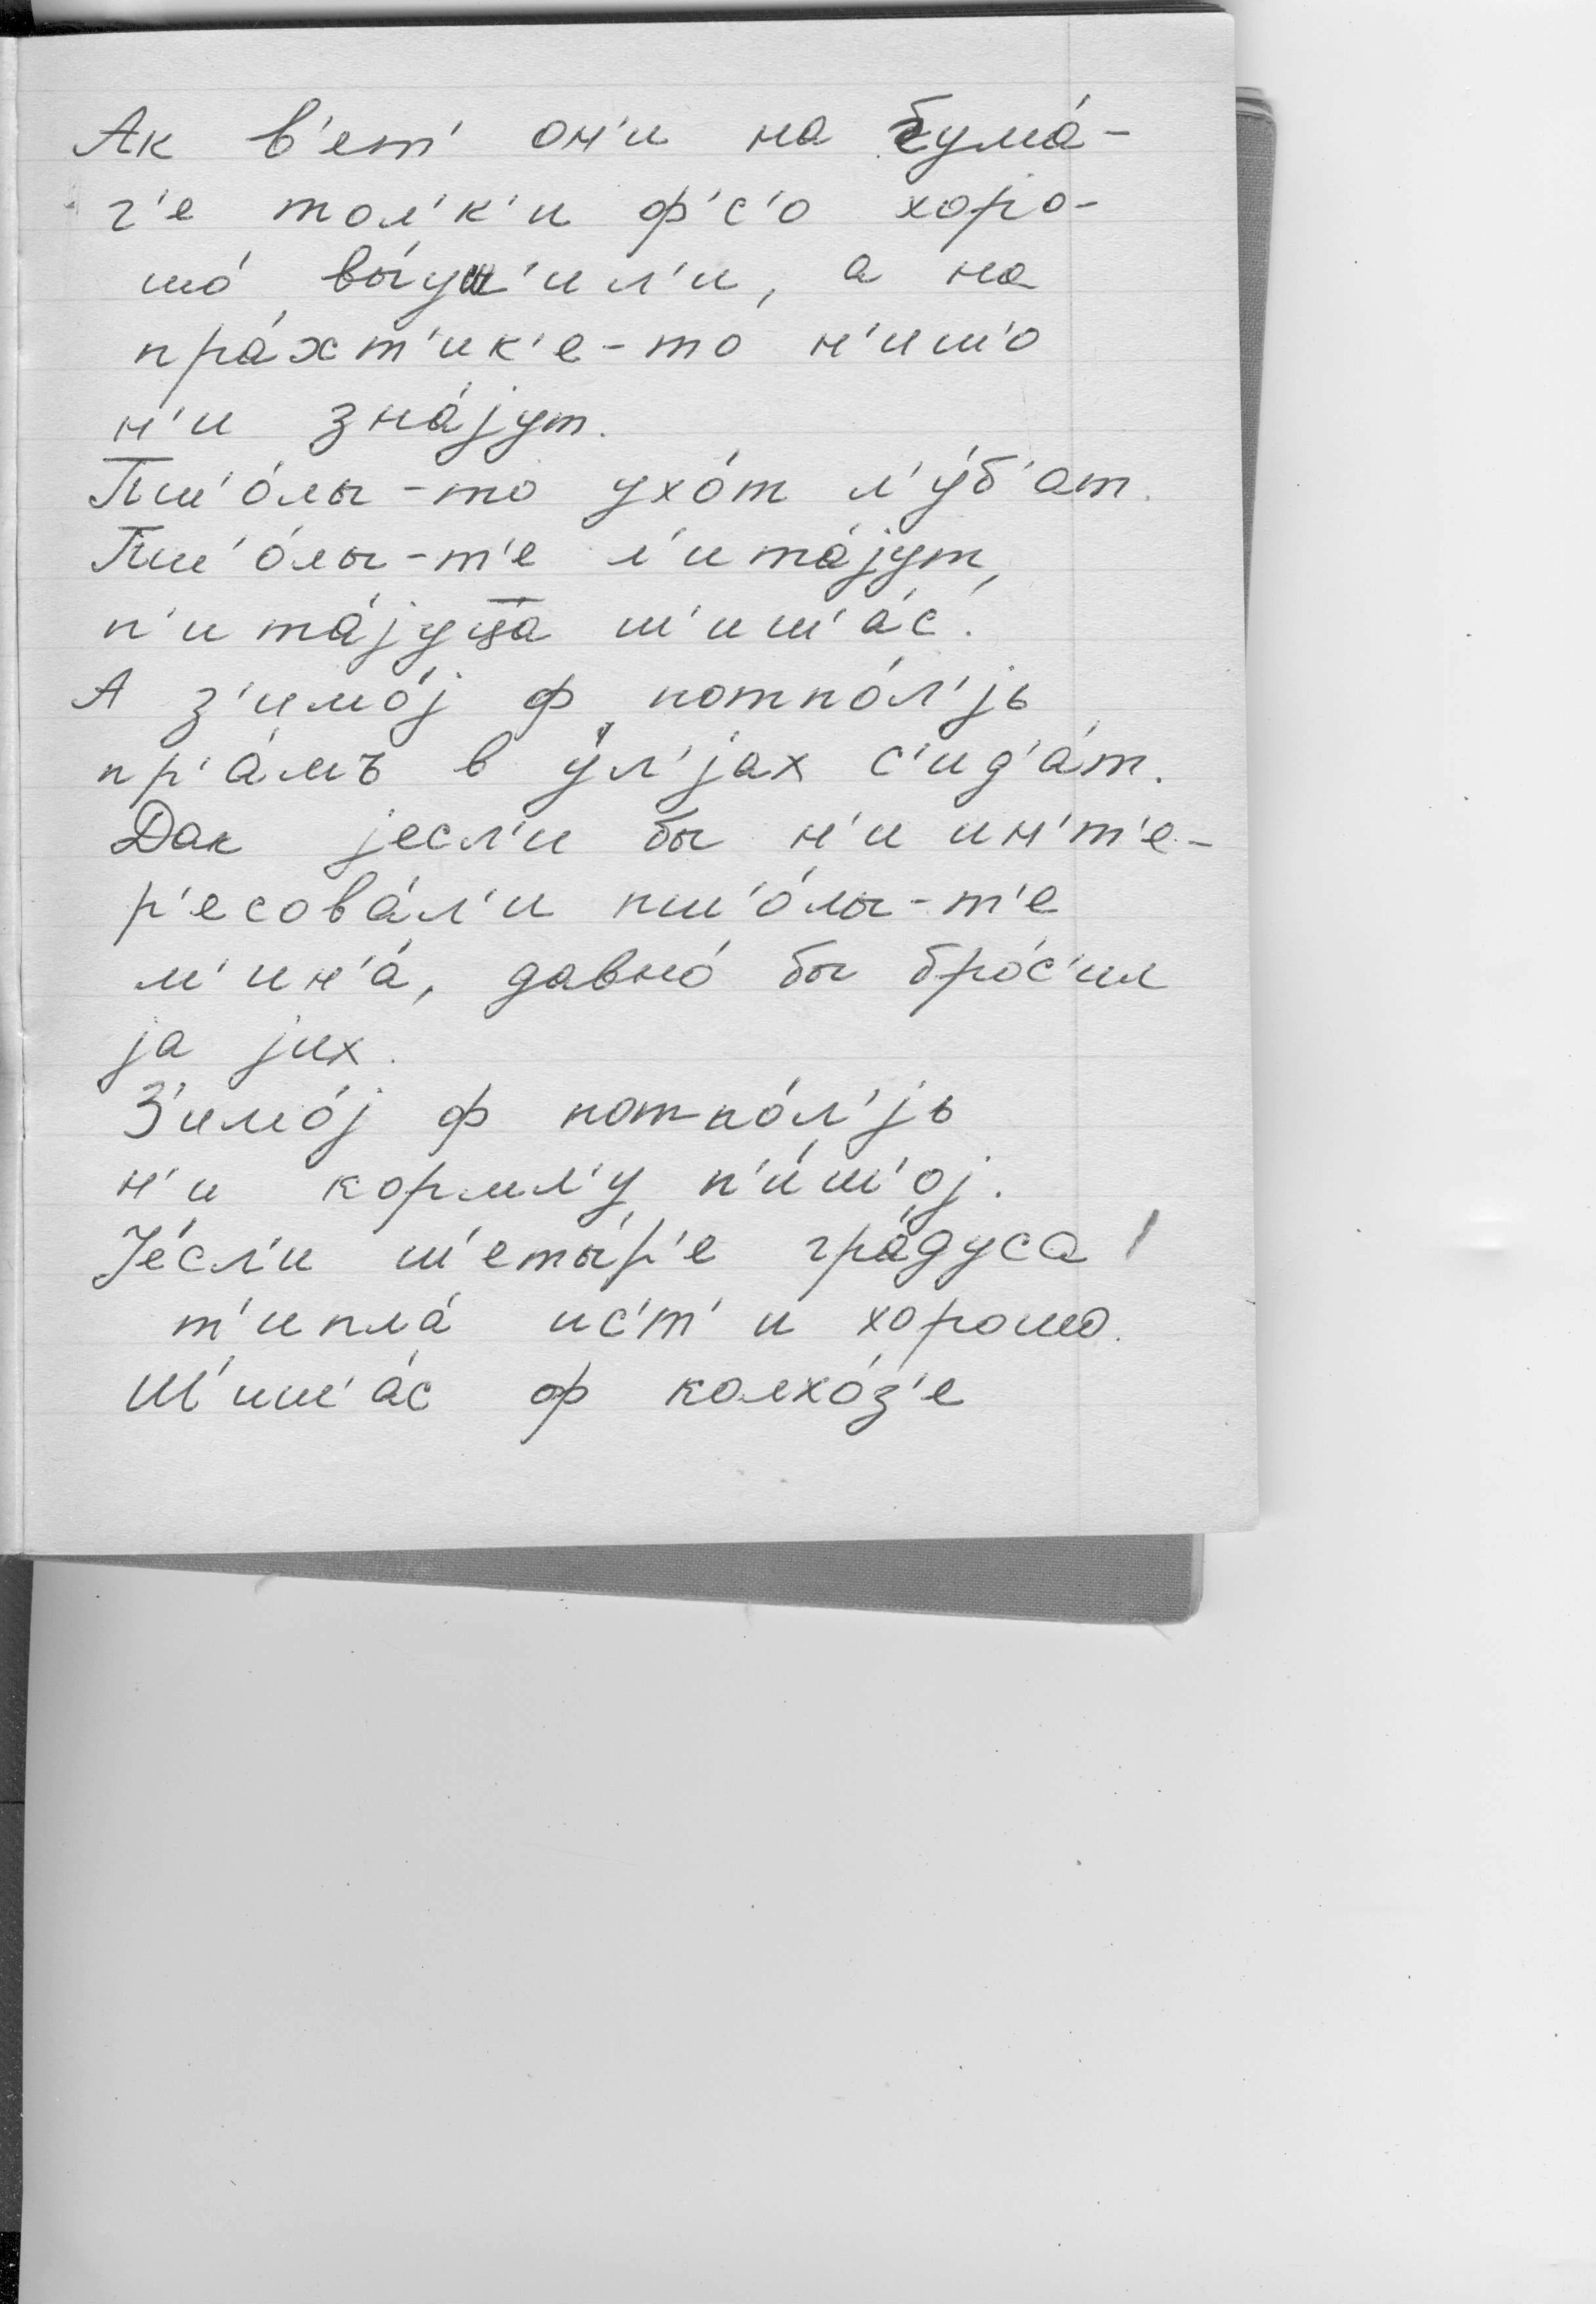 Ак в'ет' он'и на бума́-
г'е тол'к'и ф'с'о хоро-
шо́ вы́уш'ил'и, а на
пра́хт'ик'е-то н'иш'о
н'и зна́јут.
Пш'о́лы-то ухо́т л'у́б'ат.
Пш'о́лы-т'е л'ита́јут,
п'ита́јуц̄а ш'иш'а́с.
А з'имо́ј ф потпо́л'јь
пр'а́мъ в у́л'јах с'ид'а́т.
Дак јесл'и бы н'и ин'т'е-
р'есова́л'и пш'о́лы-т'е
м'ин'а́, давно́ бы бро́с'ил
ја јих.
З'имо́ј ф потпо́л'јь
н'и кормл'у п'и́ш'ој.
Је́сл'и ш'еты́р'е гра́дуса
т'ипла́ ис'т' и хорошо.
Ш'иш'а́с ф колхо́з'е